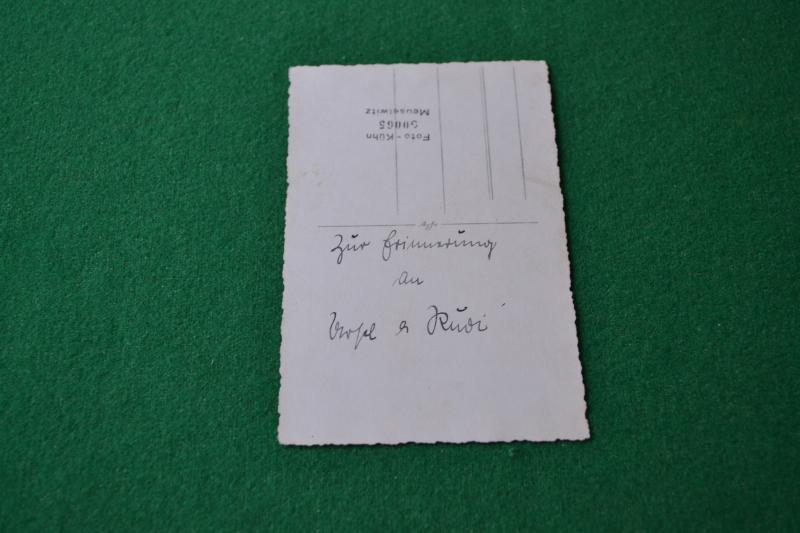 Foto-Kühn
50065
Meuselwitz
Zur Erinnerung
an
& Rudi